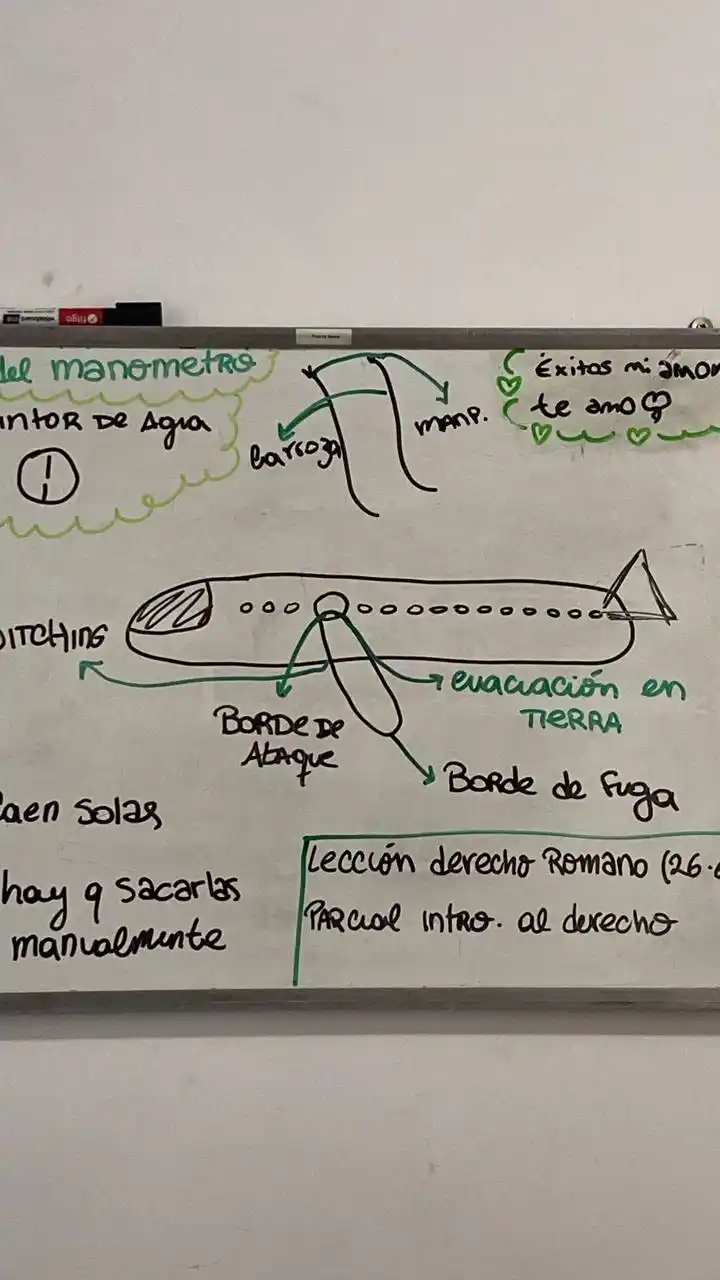 del manometro
intor de Agua
barroza
manp.
Éxitos mi amor
te amo
DITCHING
BORDE DE
AtAque
evacuación en
TIERRA
Borde de fuga
caen solas
hay q sacarlas
manualmente
Lección derecho Romano (26.
PARcial intro. al derecho